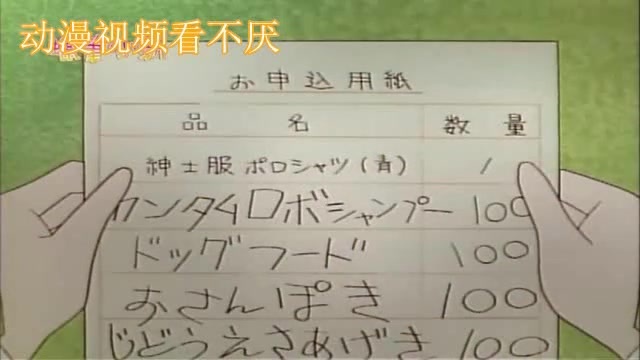 动漫视频看不厌
お申込用紙
品名 数量
紳士服 ポロシャツ(青) 1
カンタムロボシャンプー 100
ドッグフード 100
おさんぽき 100
じどうえさあげき 100